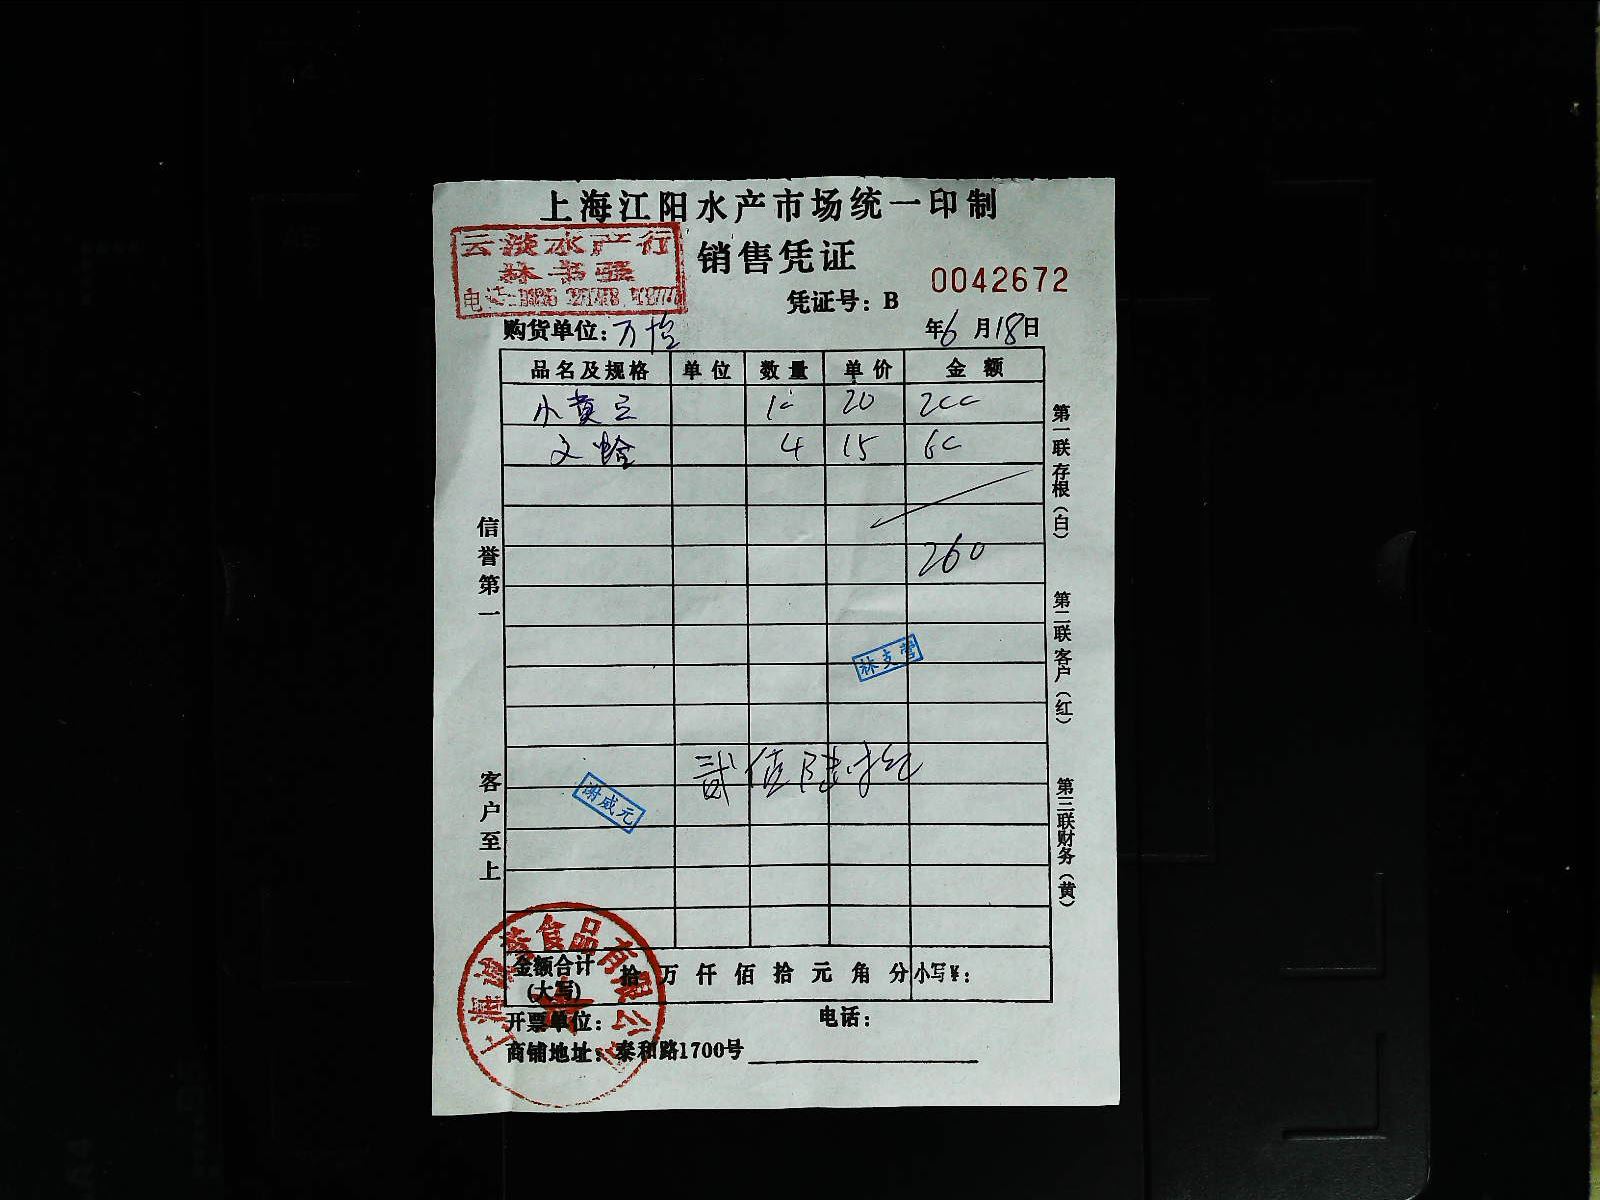 上海江阳水产市场统一印制
云淡水产行
林书强
销售凭证
0042672
凭证号：B
购货单位：万怡
年6月18日
品名及规格 单位 数量 单价 金额
小黄豆 10 20 200
文蛤 4 15 60
260
信誉第一
客户至上
第一联存根（白）
第二联客户（红）
第三联财务（黄）
林支营
谢咸元
贰佰陆拾元
金额合计(大写) 拾万仟佰拾元角分 小写￥：
开票单位： 电话：
商铺地址：泰和路1700号